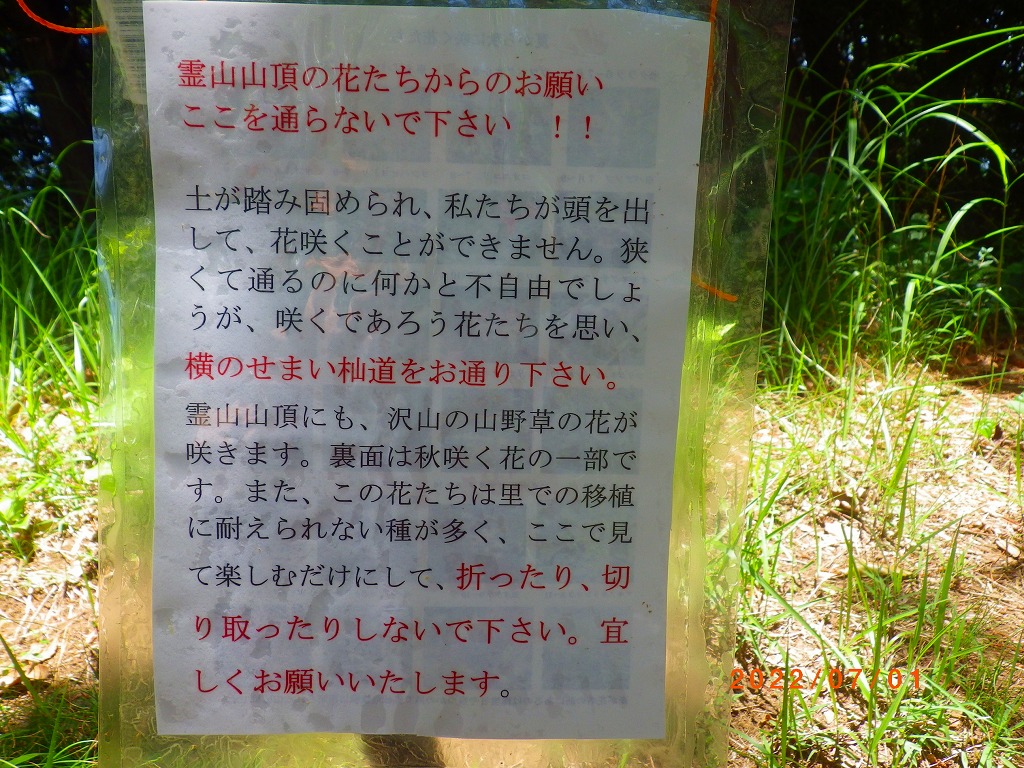 霊山山頂の花たちからのお願い
ここを通らないで下さい ！！
土が踏み固められ、私たちが頭を出
して、花咲くことができません。狭
くて通るのに何かと不自由でしょ
うが、咲くであろう花たちを思い、
横のせまい杣道をお通り下さい。
霊山山頂にも、沢山の山野草の花が
咲きます。裏面は秋咲く花の一部で
す。また、この花たちは里での移植
に耐えられない種が多く、ここで見
て楽しむだけにして、折ったり、切
り取ったりしないで下さい。宜
しくお願いいたします。
2022/07/01